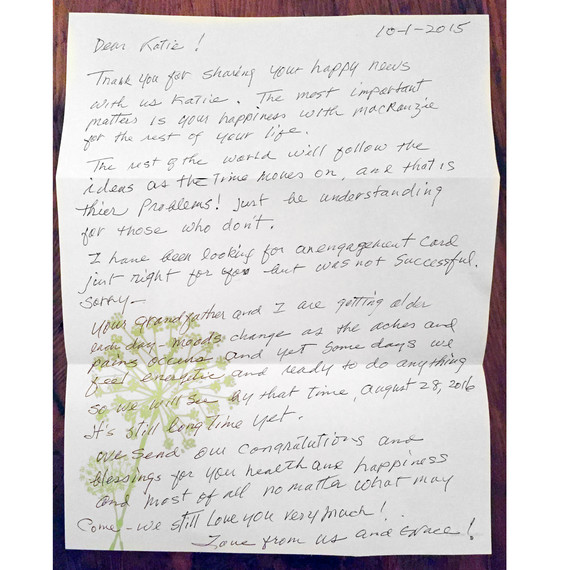 10-1-2015
Dear Katie!
Thank you for sharing your happy news
with us Katiie. The most important
matters is your happiness with macKenzie
for the rest of your life.
The rest of the world will follow the
ideas as the time moves on, and that is
thier Problems! just be understanding
for those who don't.
I have been looking for an engagement card
just right for you but was not successful.
Sorry—
Your grandfather and I are getting older
each day - moods change as the aches and
pains occurs and yet some days we
feel energetic and ready to do anything
so we will see by that time, august 28, 2016
It's still long time yet.
We send our congratutions and
blessings for your health and happiness
and most of all no matter what may
Come - we still Love you very much!
Love from us and Grace!